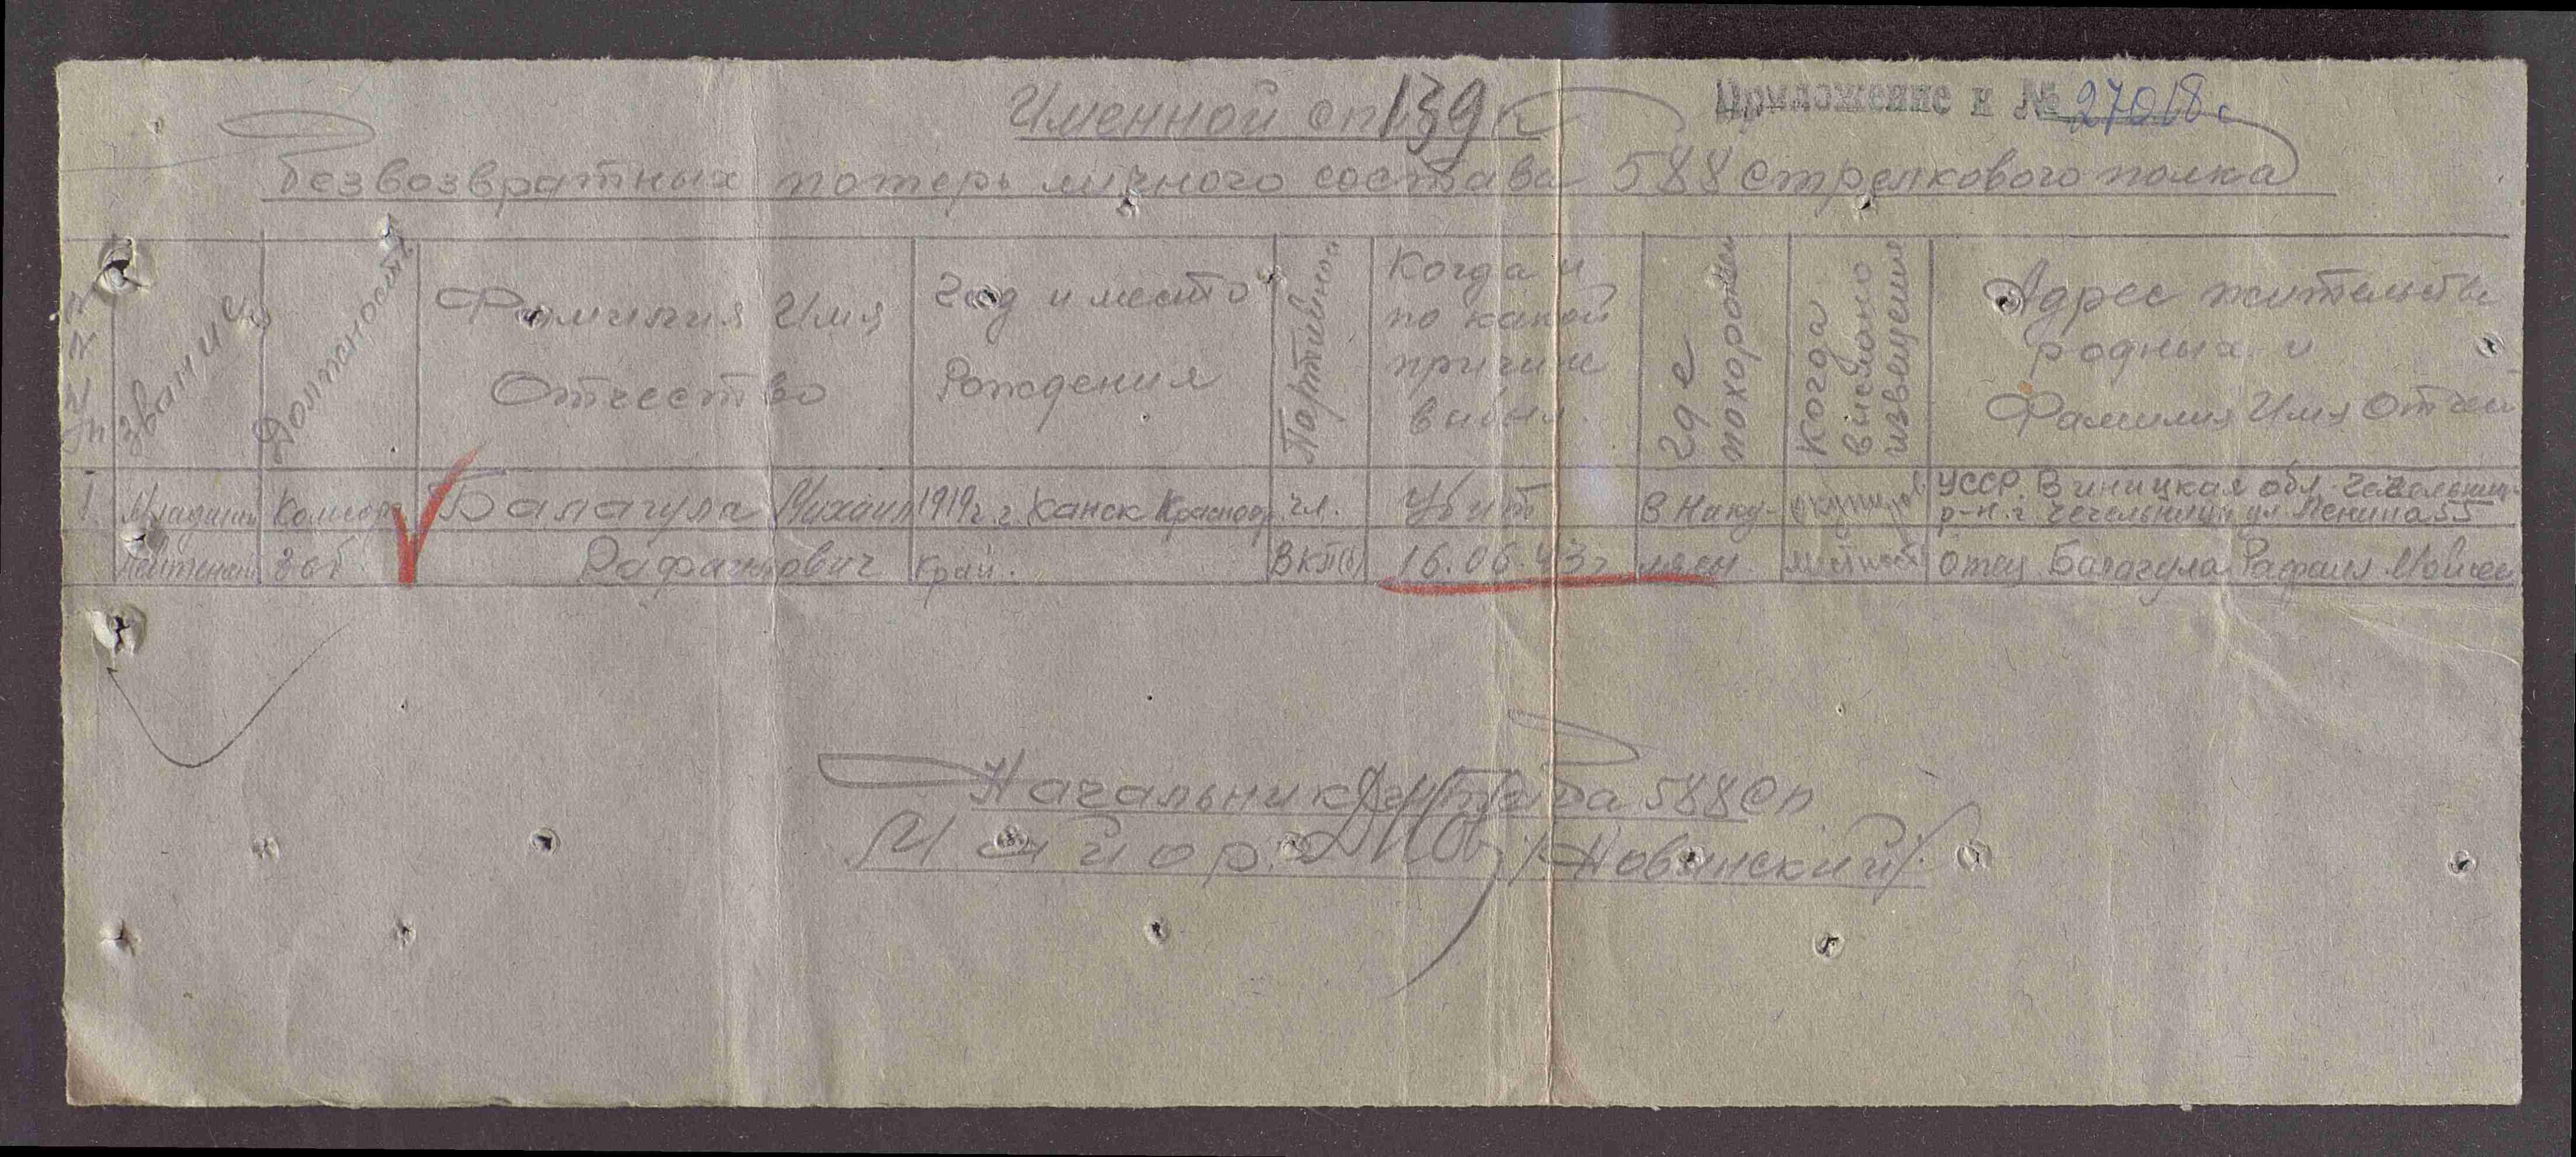 Именной список
139
Приложение к № 27018с
безвозвратных потерь личного состава 588 стрелкового полка
№№ п/п
звание
Должность
Фамилия Имя Отчество
Год и место Рождения
Партийнос
Когда и по какой причине выбыл.
где похоронен
Когда выслано извещение
Адрес жительства родных и Фамилия Имя Отчес
1. Младший Комсорг Балагула Михаил 1919 г. г. Канск Красноар. чл. Убит В Наку- УССР. Виницкая обл. Чечельниц. р-н. г. Чечельницк ул Ленина 55
лейтенант Рафаилович край. ВКП(б) 16.06.43 г. местност отец Балагула Рафаил Моисее
Начальник Штаба 588 Сп
Майор /Новинский/.